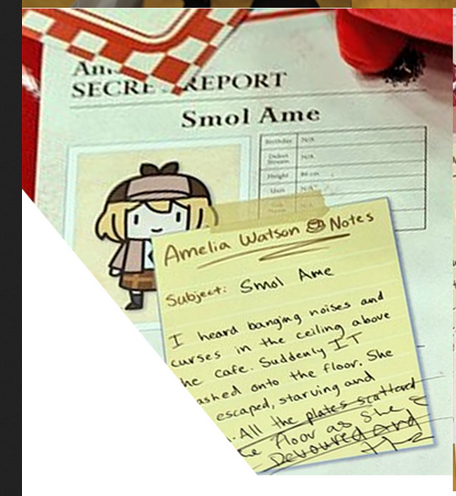 SECRE REPORT
Smol Ame
Birthday N/A
Debut Stream N/A
Height
Unit N/A
Amelia Watson Notes
Subject: Smol Ame
I heard banging noises and
curses in the ceiling above
he cafe. Suddenly IT
ashed onto the floor. She
escaped, starving and
All the plates scattard
floor as she
Devoured and
the